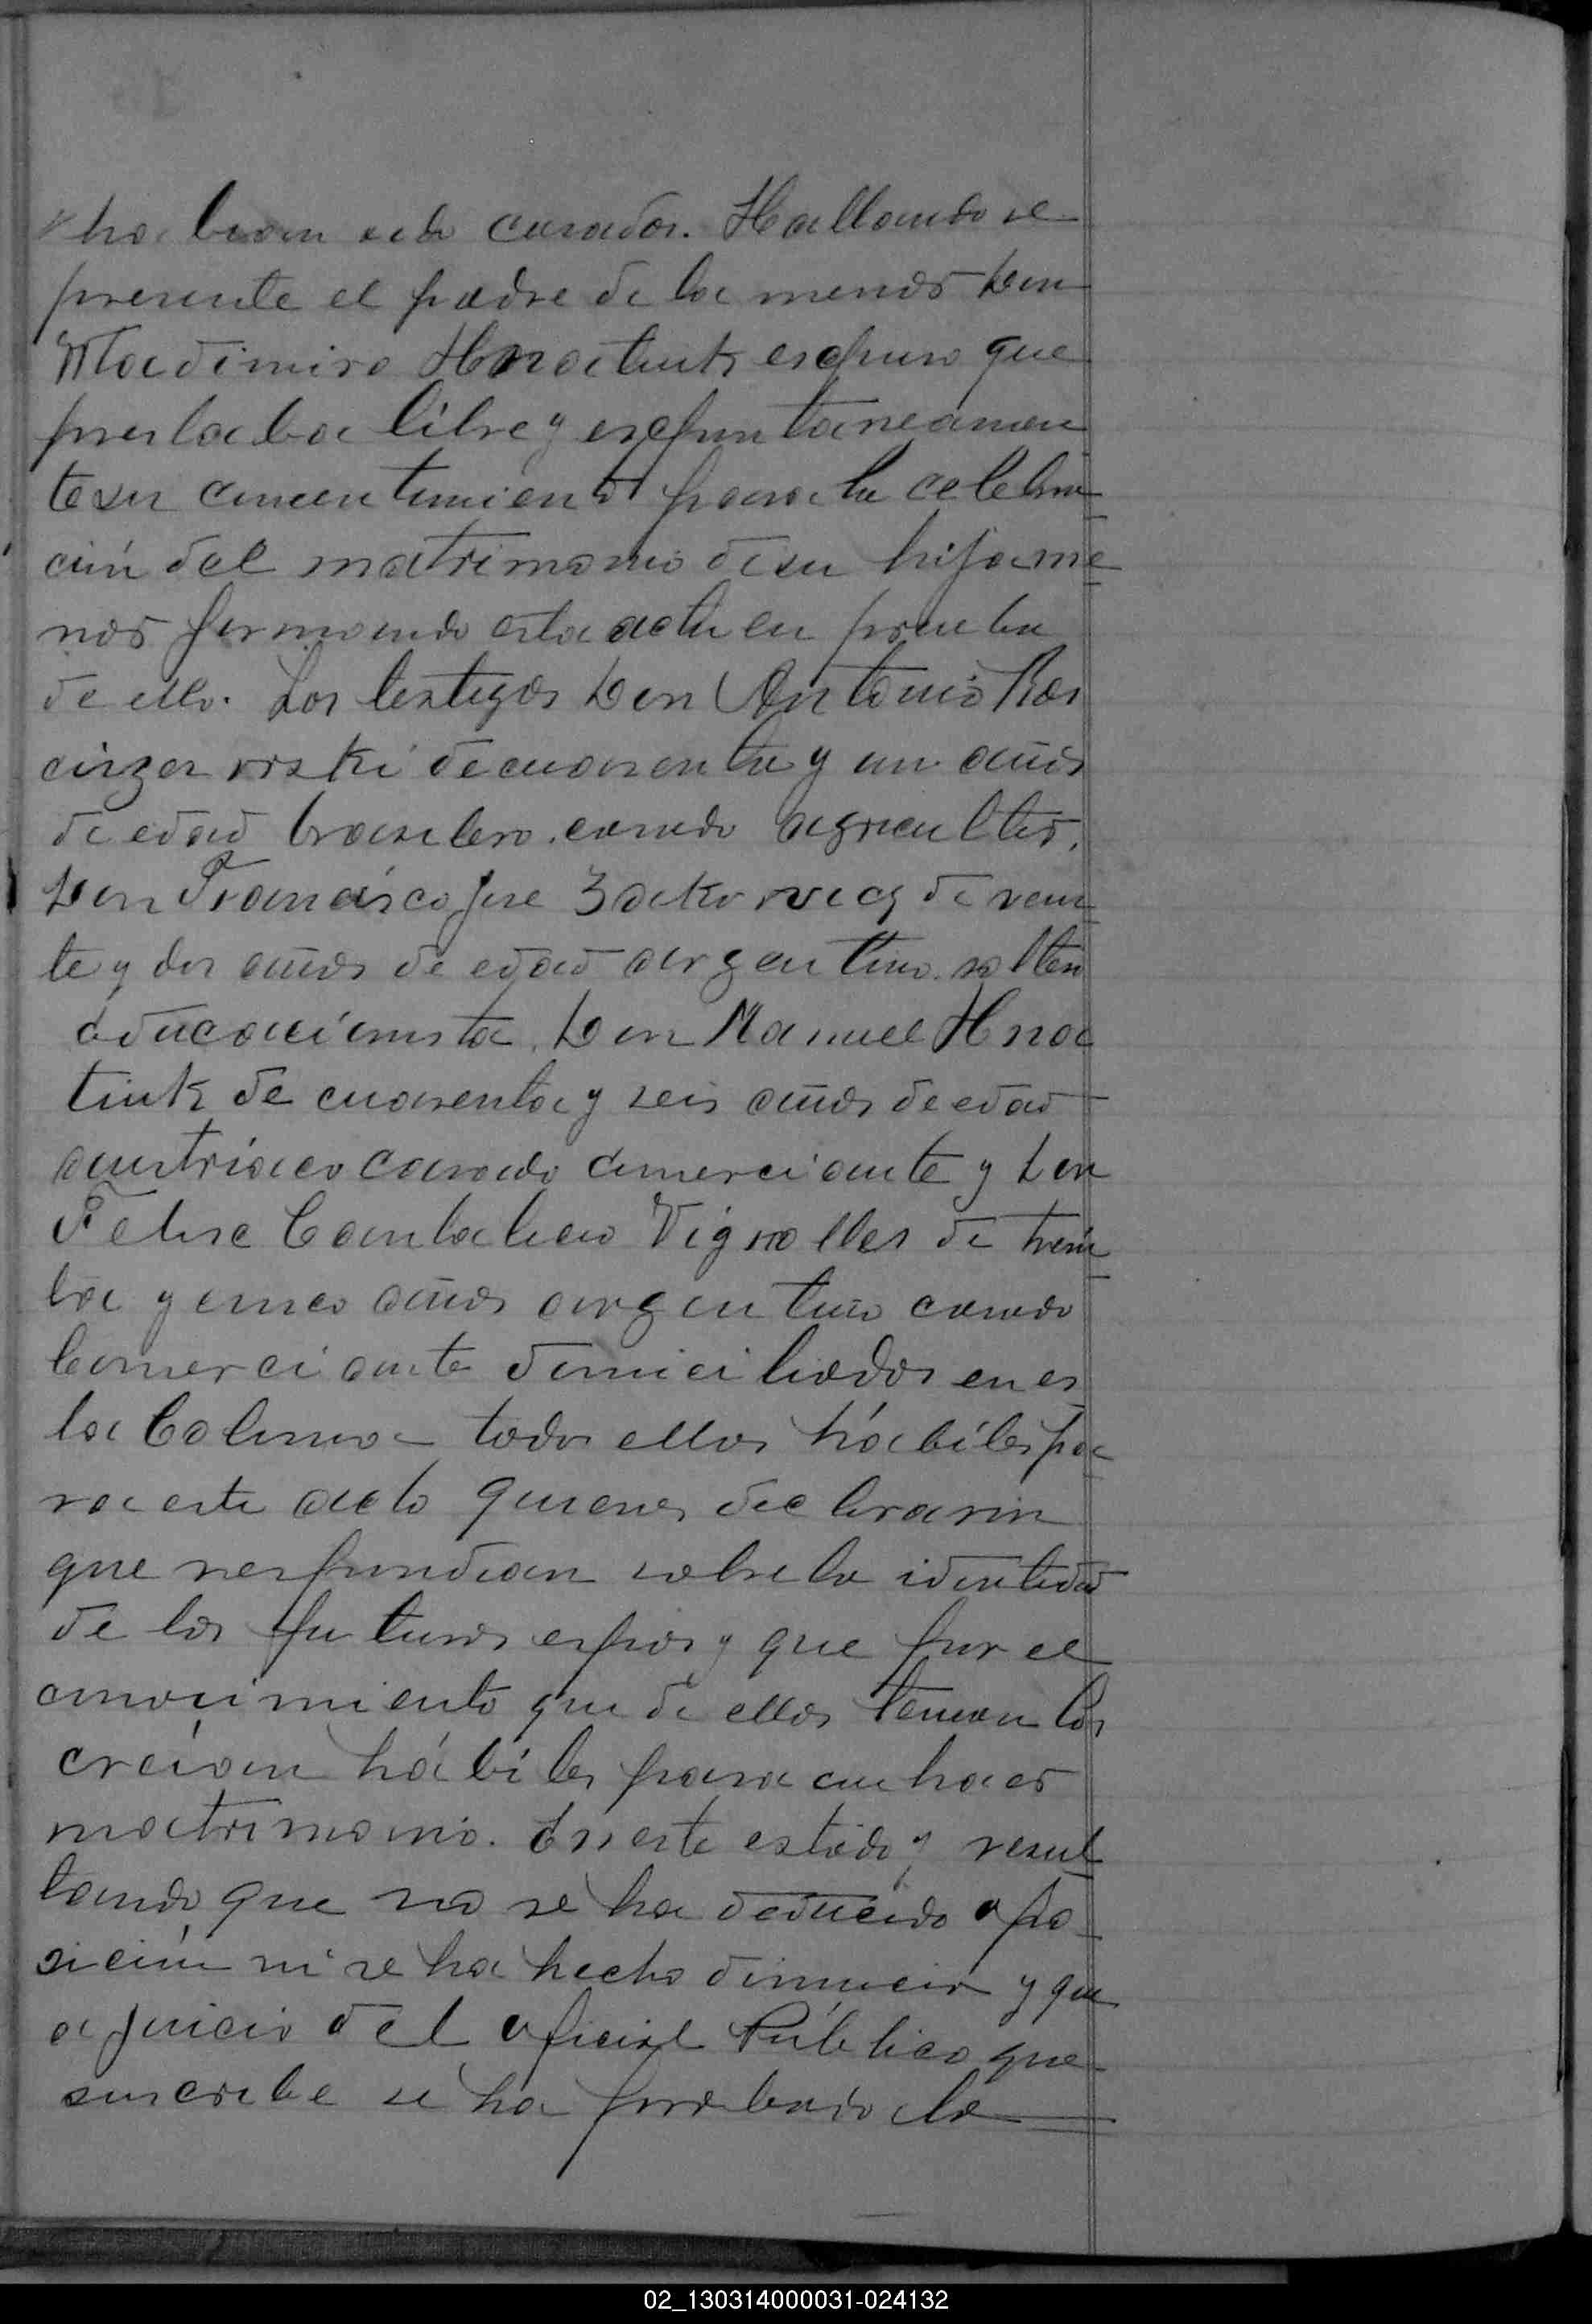 habian sido casados. Hallandose
presente el padre de la menor Don
Wladimiro Hnatiuk expuso que
prestaba libre y espontaneamen
te su consentimiento para la celebra
ción del matrimonio de su hija me
nor firmando esta acta en prueba
de ello. Los testigos Don Antonio
de cuarenta y un años
de edad brasilero casado agricultor.
Don Francisco José de vein
te y dos años de edad argentino soltero
educacionista. Don Manuel Hna
tiuk de cuarenta y seis años de edad
austríaco casado comerciante y Don
Felipe Cantalicio Vignolles de trein
ta y cinco años argentino casado
comerciante domiciliados en es
ta Colonia todos ellos hábiles pa
ra este acto quienes declararon
que respondian sobre la identidad
de los futuros esposos y que por el
conocimiento que de ellos tenian los
creían hábiles para contraer
matrimonio. En este estado y resul
tando que no se ha deducido opo
sición ni se ha hecho denuncia y que
a juicio del oficial Público que
suscribe se ha probado la